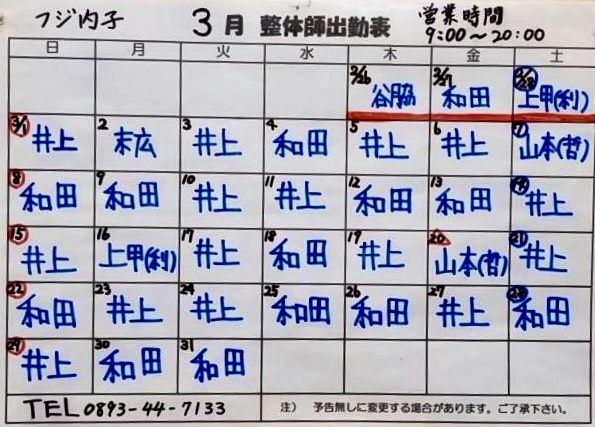 フジ内子 3月 整体師出勤表 営業時間
9:00～20:00
日 月 火 水 木 金 土
2/26 2/27 2/28
谷脇 和田 上甲(利)
3/1 2 3 4 5 6 7
井上 末広 井上 和田 井上 井上 山本(哲)
8 9 10 11 12 13 14
和田 和田 井上 井上 和田 和田 井上
15 16 17 18 19 20 21
井上 上甲(利) 井上 和田 井上 山本(哲) 井上
22 23 24 25 26 27 28
和田 井上 井上 和田 和田 井上 和田
29 30 31
井上 和田 和田
TEL 0893-44-7133 注） 予告無しに変更する場合があります。ご了承下さい。